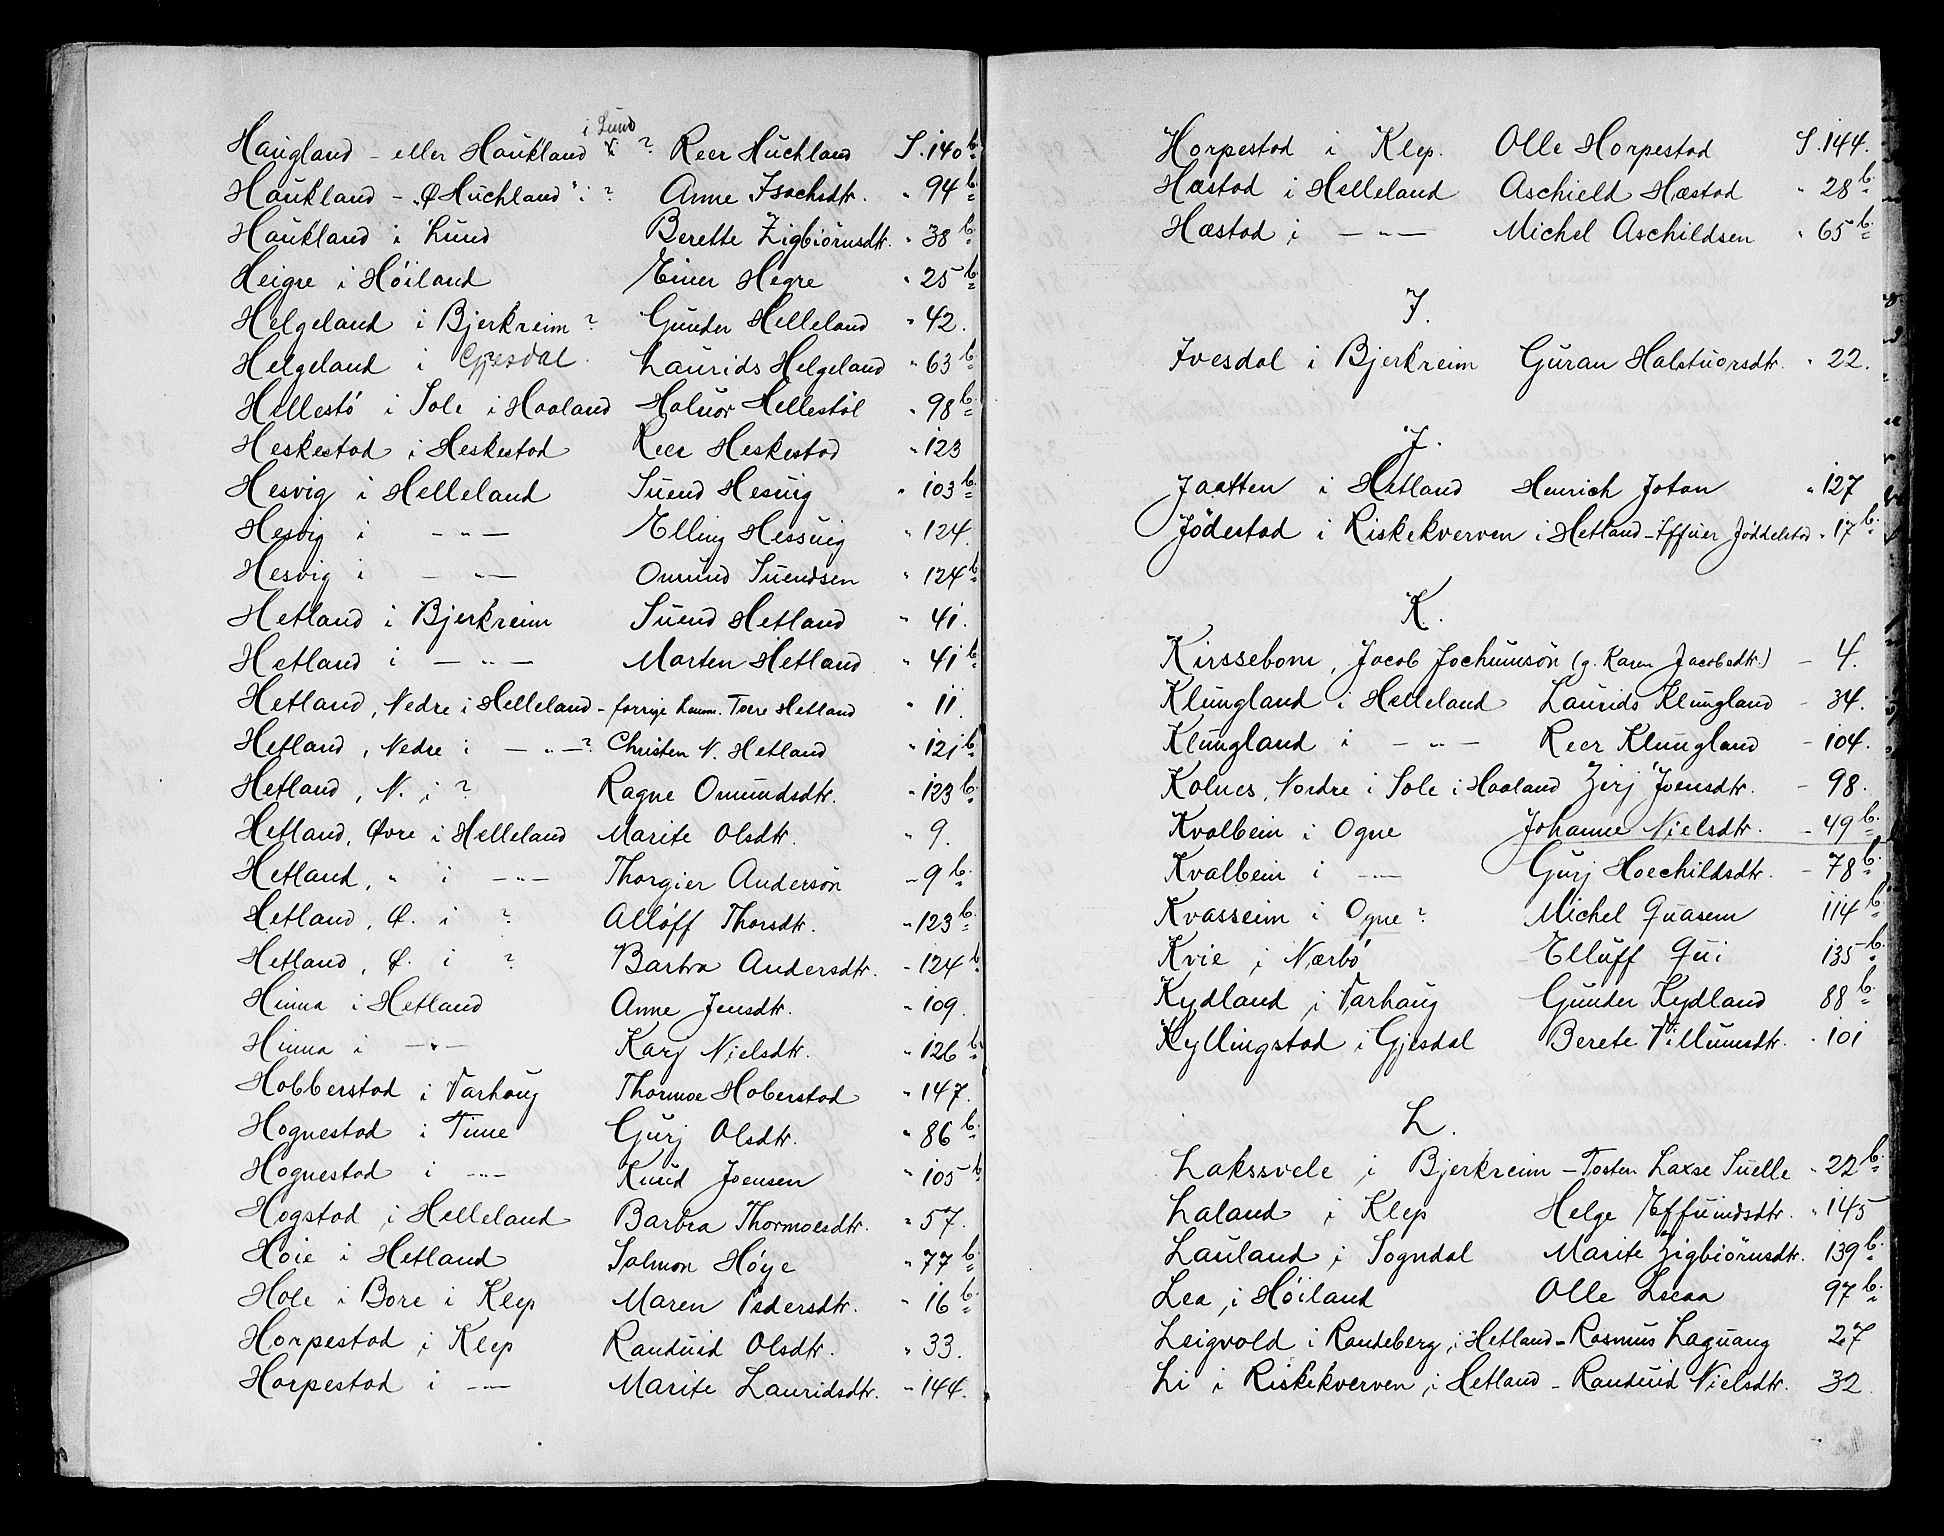 i Lund
Haugland - eller Haukland ? Reer Huchland S. 140 b.
Haukland - "Ø Huchland" i ? Anne Isachsdtr. " 94 b.
Haukland i Lund Berette Zigbiörnsdtr. " 38 b.
Heigre i Høiland Einer Hegre " 25 b.
Helgeland i Bjerkreim ? Gunder Helleland " 42.
Helgeland i Gjesdal. Laurids Helgeland " 63 b.
Hellestø i Sole i Haaland Haluor Hellestøl " 98 b.
Heskestad i Heskestad Reer Heskestad " 123
Hesvig i Helleland Suend Hesuig " 103 b.
Hesvig i — " — Elling Hessuig " 124.
Hesvig i — " — Omund Suendsen " 124 b.
Hetland i Bjerkreim Suend Hetland " 41.
Hetland i — " — Marten Hetland " 41 b.
Hetland, Nedre i Helleland - forrige Lensm. Toere Hetland " 11.
Hetland, Nedre i — " — ? Christen N. Hetland " 121 b.
Hetland, N. i ? Ragne Omundsdtr. " 123 b.
Hetland, Øvre i Helleland Marite Olsdtr. " 9.
Hetland, " i — " — Thorgier Andersön " 9 b.
Hetland, Ø. i ? Allöff Thorsdtr. " 123 b.
Hetland, Ø. i ? Barbra Andersdtr. " 124 b.
Hinna i Hetland Anne Jensdtr. " 109.
Hinna i — " — Karj Nielsdtr. " 126 b.
Hobberstad i Varhaug Thormoe Hoberstad " 147.
Hognestad i Time Gurj Olsdtr. " 86 b.
Hognestad i — " — Knud Joensen " 105 b
Hogstad i Helleland Barbra Thormoesdtr. " 57.
Høie i Hetland Salmon Høye " 77 b.
Hole i Bore i Klep Maren Pedersdtr. " 16 b.
Horpestad i Klep Randuid Olsdtr. " 33.
Horpestad i — " — Marite Lauridsdtr. " 144.
Horpestad i Klep. Olle Horpestad S. 144.
Hæstad i Helleland Aschield Hæstad " 28 b.
Hæstad i — " — Michel Aschildsen " 65 b.
I.
Ivesdal i Bjerkreim Guran Halstuorsdtr. " 22.
J.
Jaatten i Hetland Henrich Jotan " 127
Jödestad i Riskekverven i Hetland - Iffuer Jøddelstad " 17 b.
K.
Kirssebom, Jacob Jochumsön (g. Karen Jacobsdtr.) - 4.
Klungland i Helleland Laurids Klungland - 34.
Klungland i — " — Reer Klungland - 104.
Kolnes, Nordre i Sole i Haaland Zirj Joensdtr. - 98.
Kvalbein i Ogne Johanne Nielsdtr. - 49 b.
Kvalbein i — " — Gurj Hoechildsdtr. - 78 b.
Kvasseim i Ogne ? Michel Quasem 114 b
Kvie i Nærbö Elluff Qui 135 b.
Kydland i Varhaug Gunder Kydland 88 b.
Kyllingstad i Gjesdal Berete Villumsdtr. " 101
L.
Lakssvele i Bjerkreim - Tosten Laxse Suelle " 22 b.
Laland i Klep Helge Effuindsdtr. " 145
Lauland i Sogndal Marite Zigbiörnsdtr. 139 b.
Lea i Høiland Olle Leeaa 97 b.
Leigvold i Randeberg i Hetland - Rasmus Laguang 27
Li i Riskekverven i Hetland - Randuid Nielsdtr. 32.